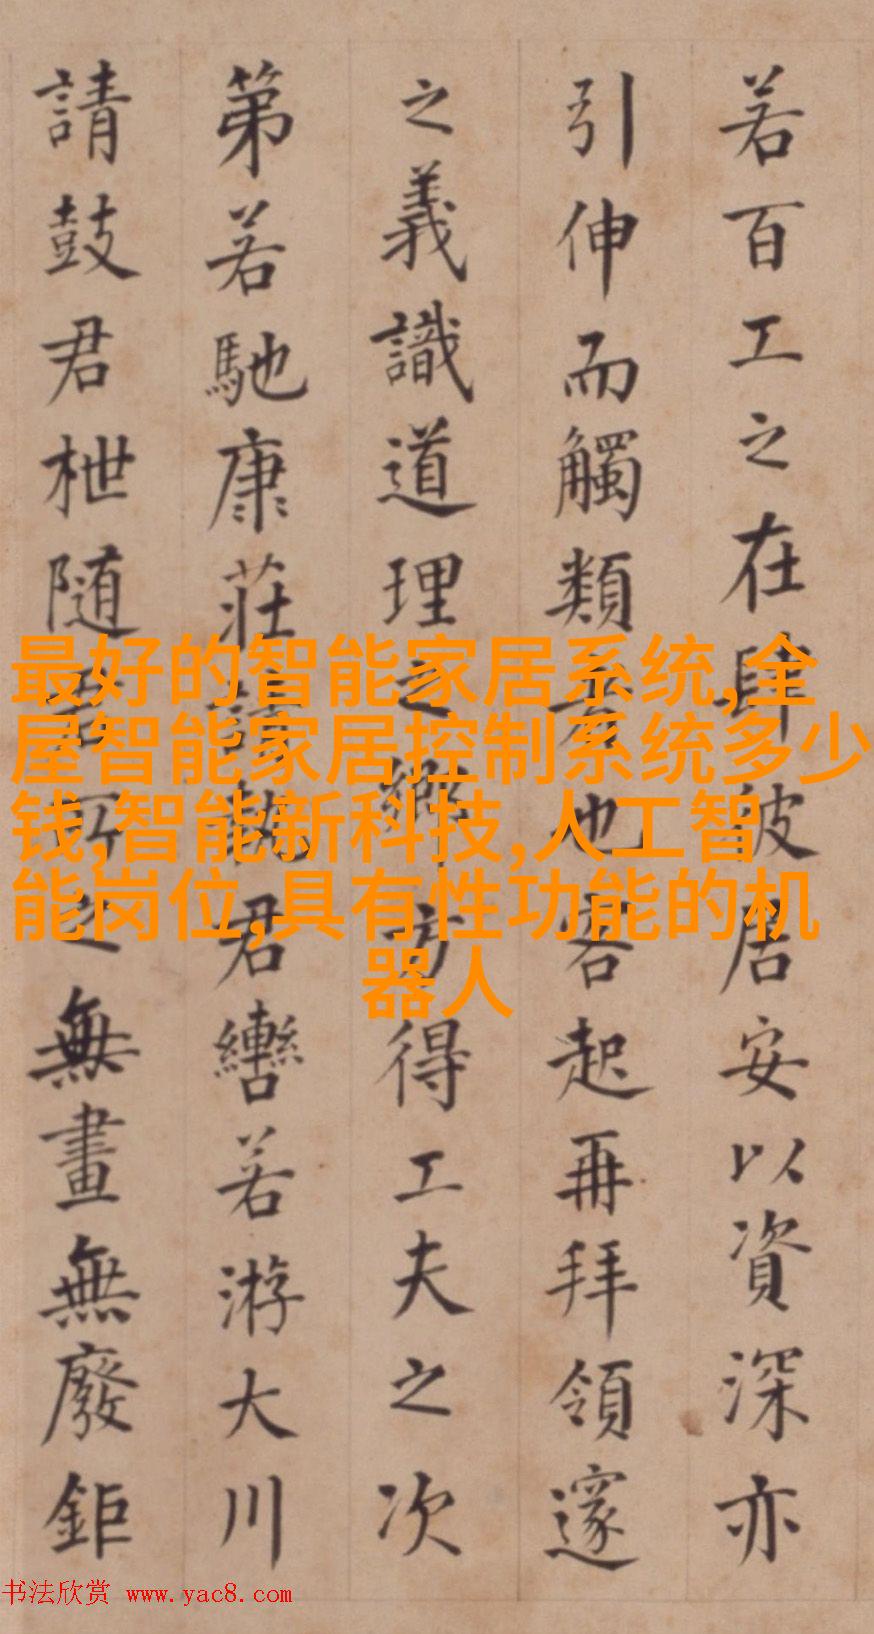 若百工之在肆彼居安以資深亦
引伸而觸類者也客起再拜領邃
之義識道理之鄉方得工夫之次
第若馳康莊請執君轡若游大川
請鼓君枻随君所之無畫無廢鉅
最好的智能家居系统,全
屋智能家居控制系统多少
钱,智能新科技,人工智
能岗位,具有性功能的机
器人
书法欣赏 www.yac8.com